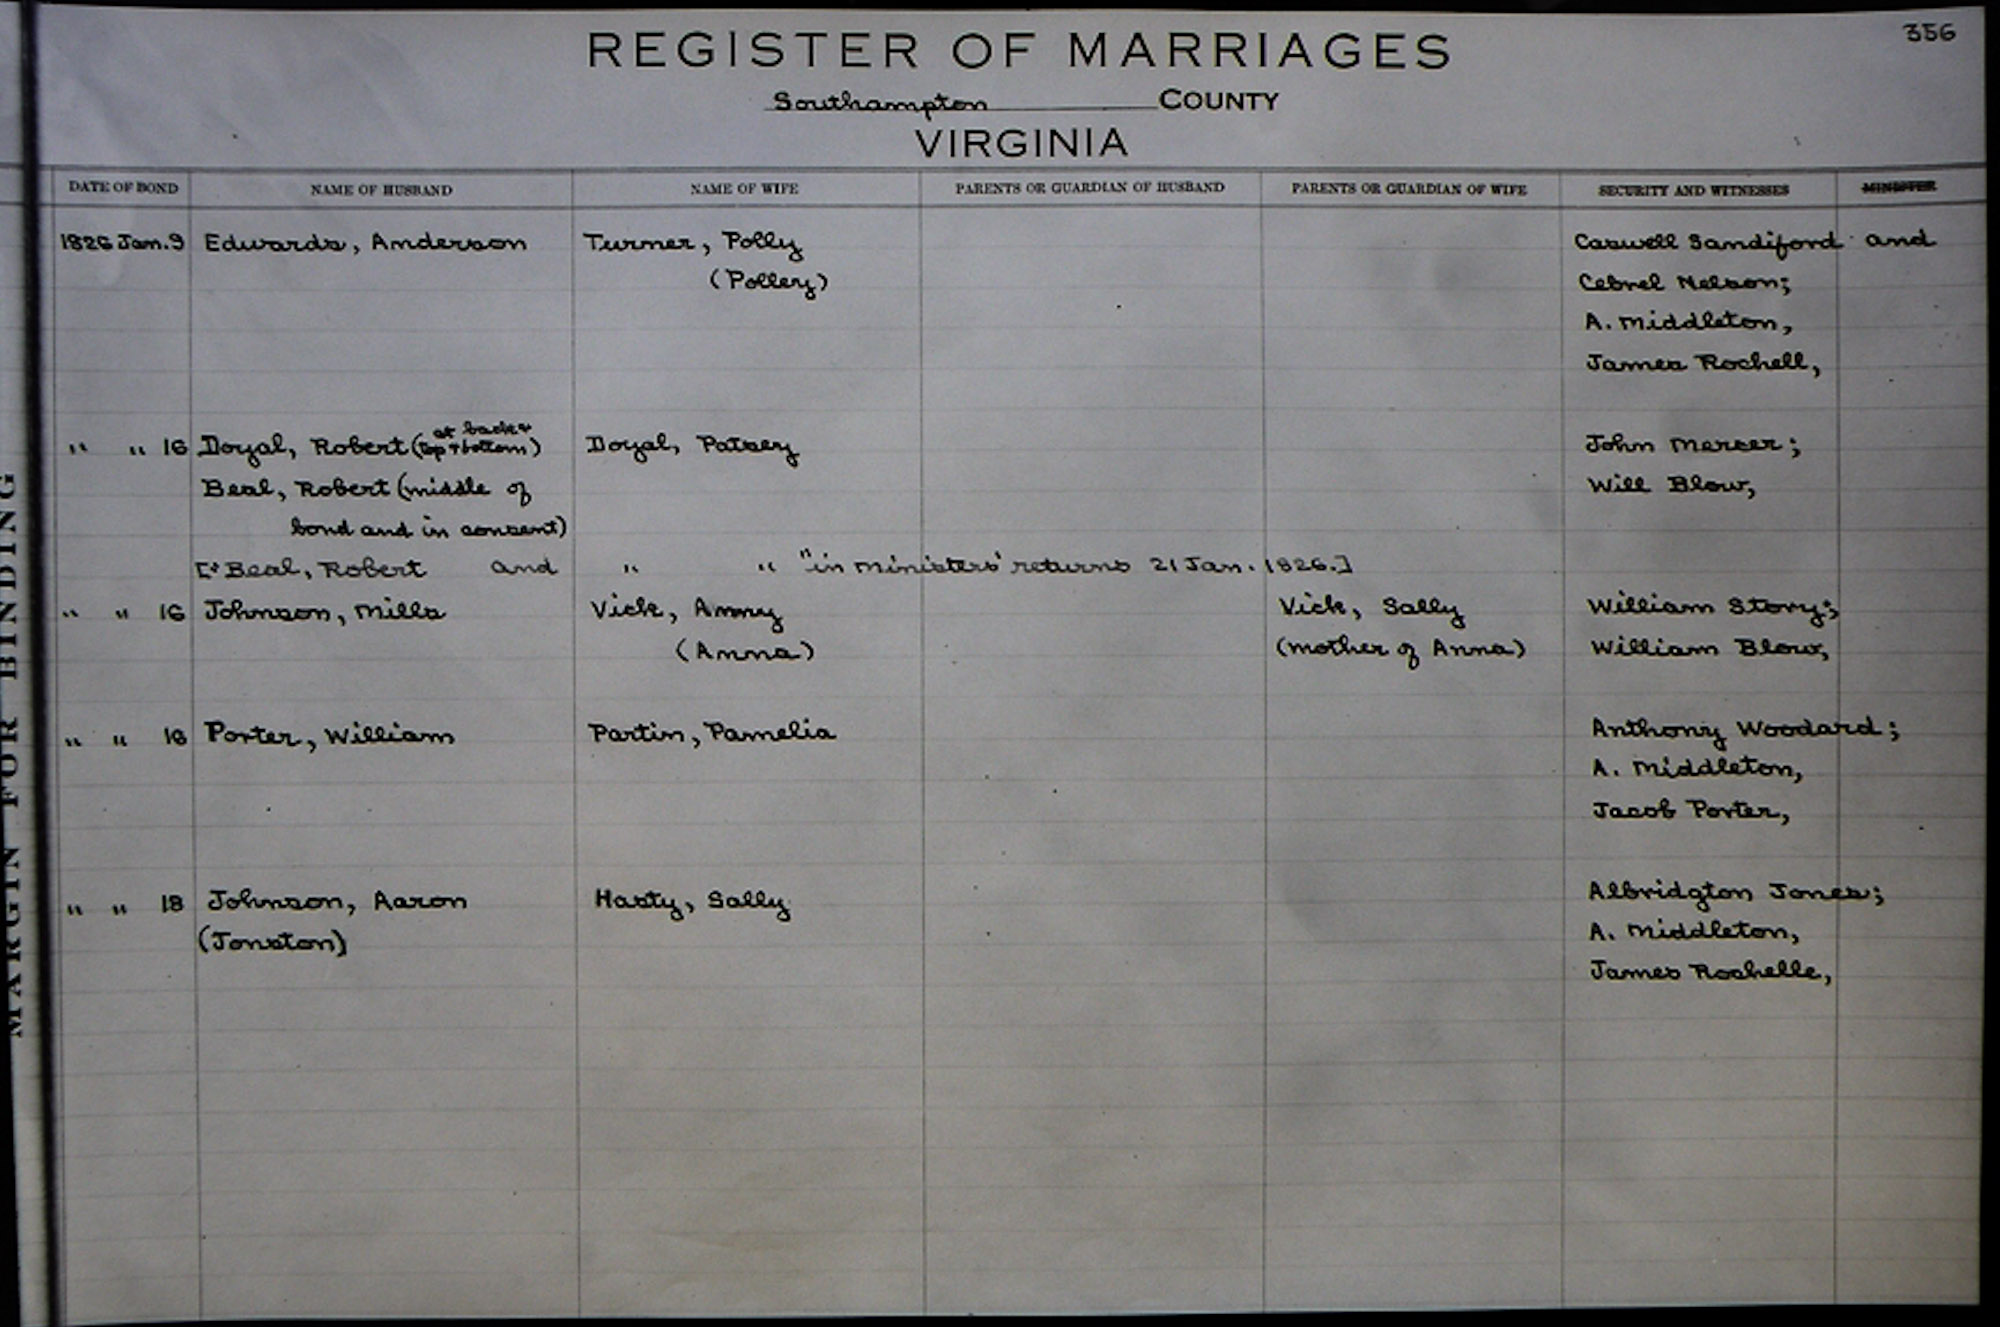 356
REGISTER OF MARRIAGES
Southampton COUNTY
VIRGINIA
DATE OF BOND NAME OF HUSBAND NAME OF WIFE PARENTS OR GUARDIAN OF HUSBAND PARENTS OR GUARDIAN OF WIFE SECURITY AND WITNESSES MINISTER
1826 Jan. 9 Edwards, Anderson Turner, Polly Caswell Sandiford and
(Polley) Cebrel Nelson;
A. Middleton,
James Rochell,
at back +
" " 16 Doyal, Robert (top + bottom) Doyal, Patsey John Mercer;
Beal, Robert (middle of Will Blow,
bond and in consent)
[* Beal, Robert and " " "in ministers' returns 21 Jan. 1826.]
" " 16 Johnson, Mills Vick, Anny Vick, Sally William Story;
(Anna) (mother of Anna) William Blow,
" " 16 Porter, William Partin, Pamelia Anthony Woodard;
A. Middleton,
Jacob Porter,
" " 18 Johnson, Aaron Hasty, Sally Albridgton Jones;
(Jonston) A. Middleton,
James Rochelle,
MARGIN FOR BINDING